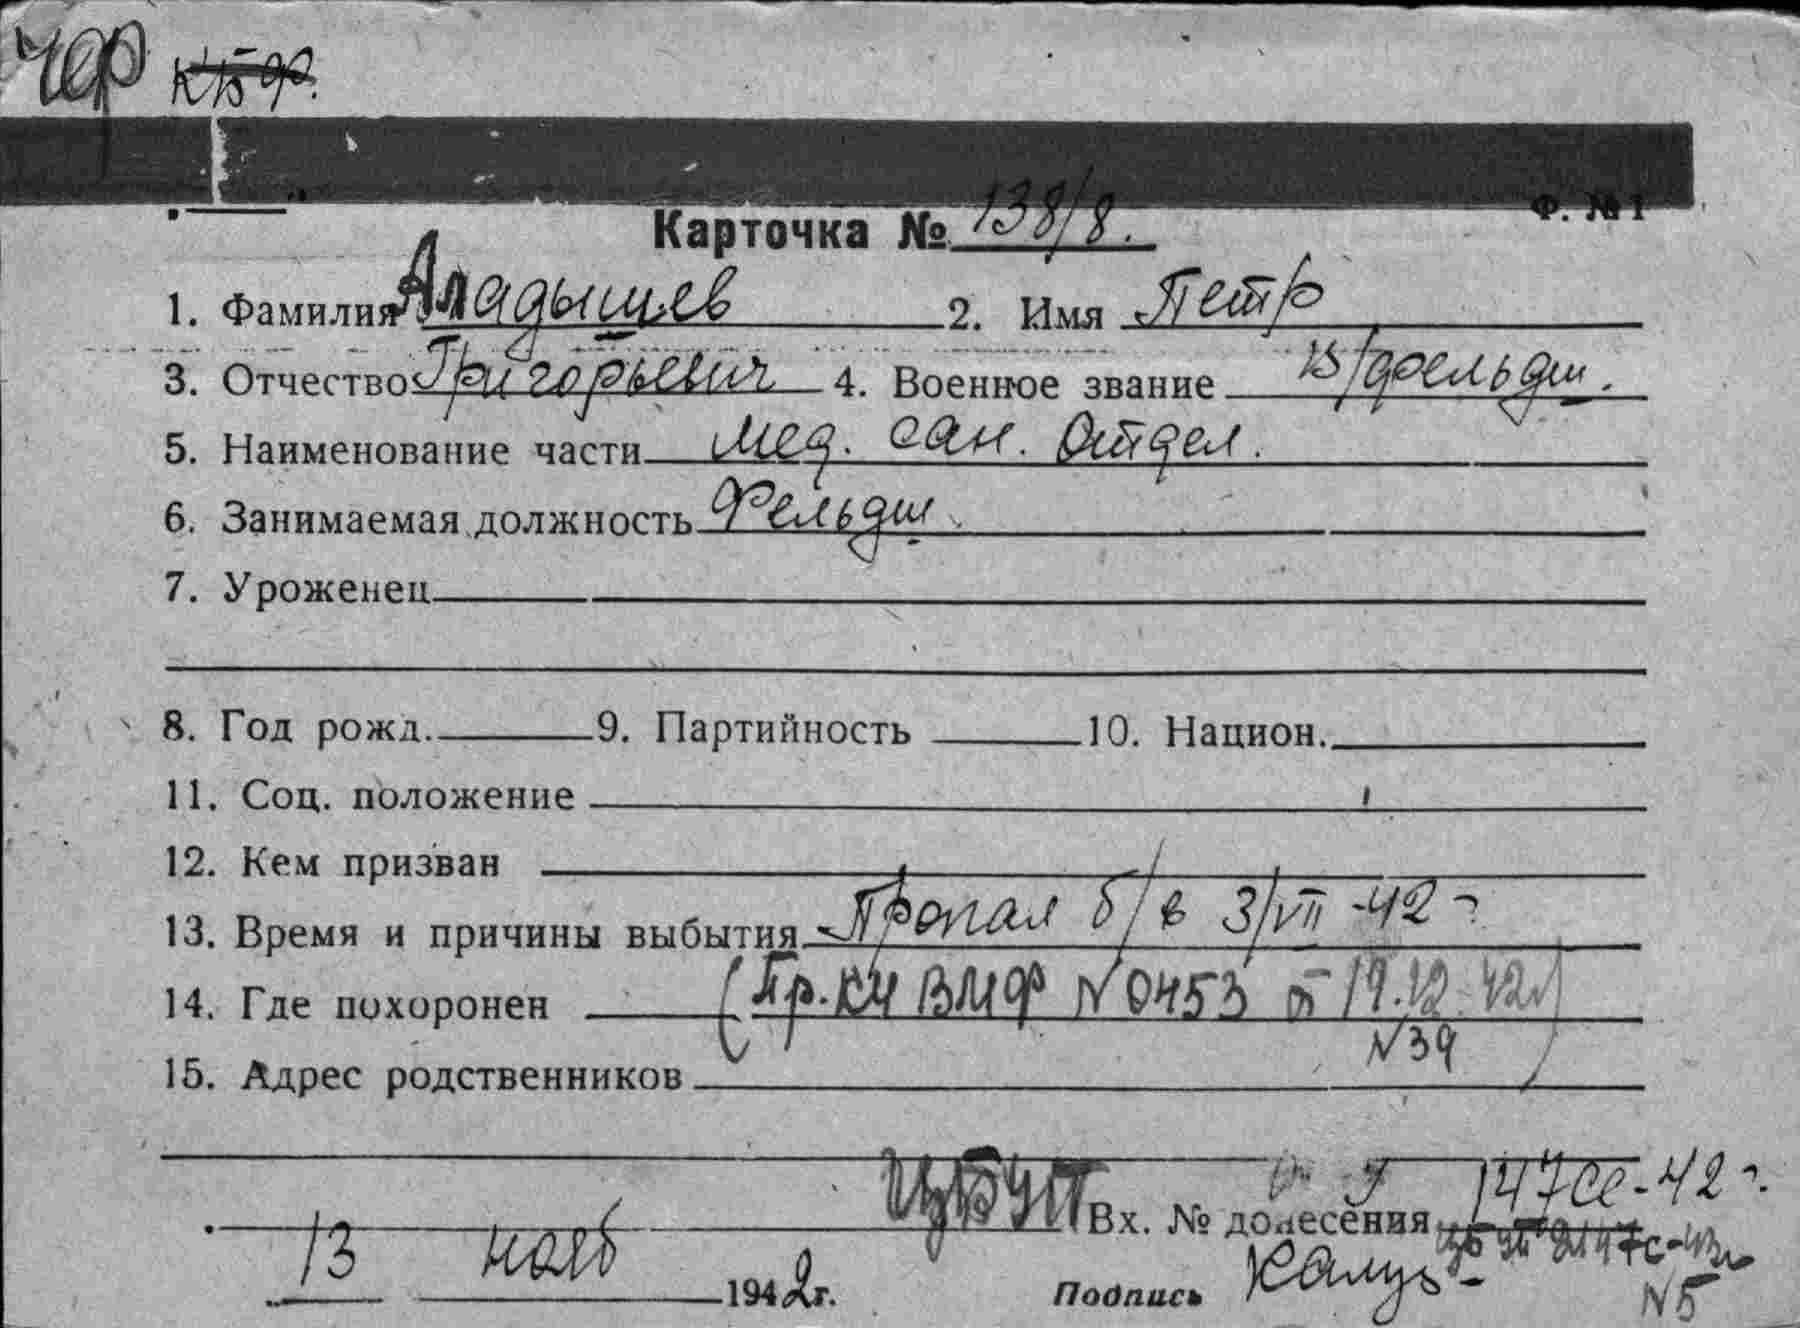 Чер КБФ.
Ф. № 1
Карточка № 138/8.
1. Фамилия Аладышев 2. Имя Петр
3. Отчество Григорьевич 4. Военное звание в/фельдш.
5. Наименование части Мед. сан. отдел.
6. Занимаемая должность Фельдш.
7. Уроженец
8. Год рожд. 9. Партийность 10. Национ.
11. Соц. положение
12. Кем призван
13. Время и причины выбытия Пропал б/в 3/VII-42 г.
14. Где похоронен (Пр. КЧ ВМФ № 0453 от 19.12.42
№39
15. Адрес родственников
ЦБУП Вх. № донесения 147сс-42 г.
13 нояб 1942 г. Подпись
№5